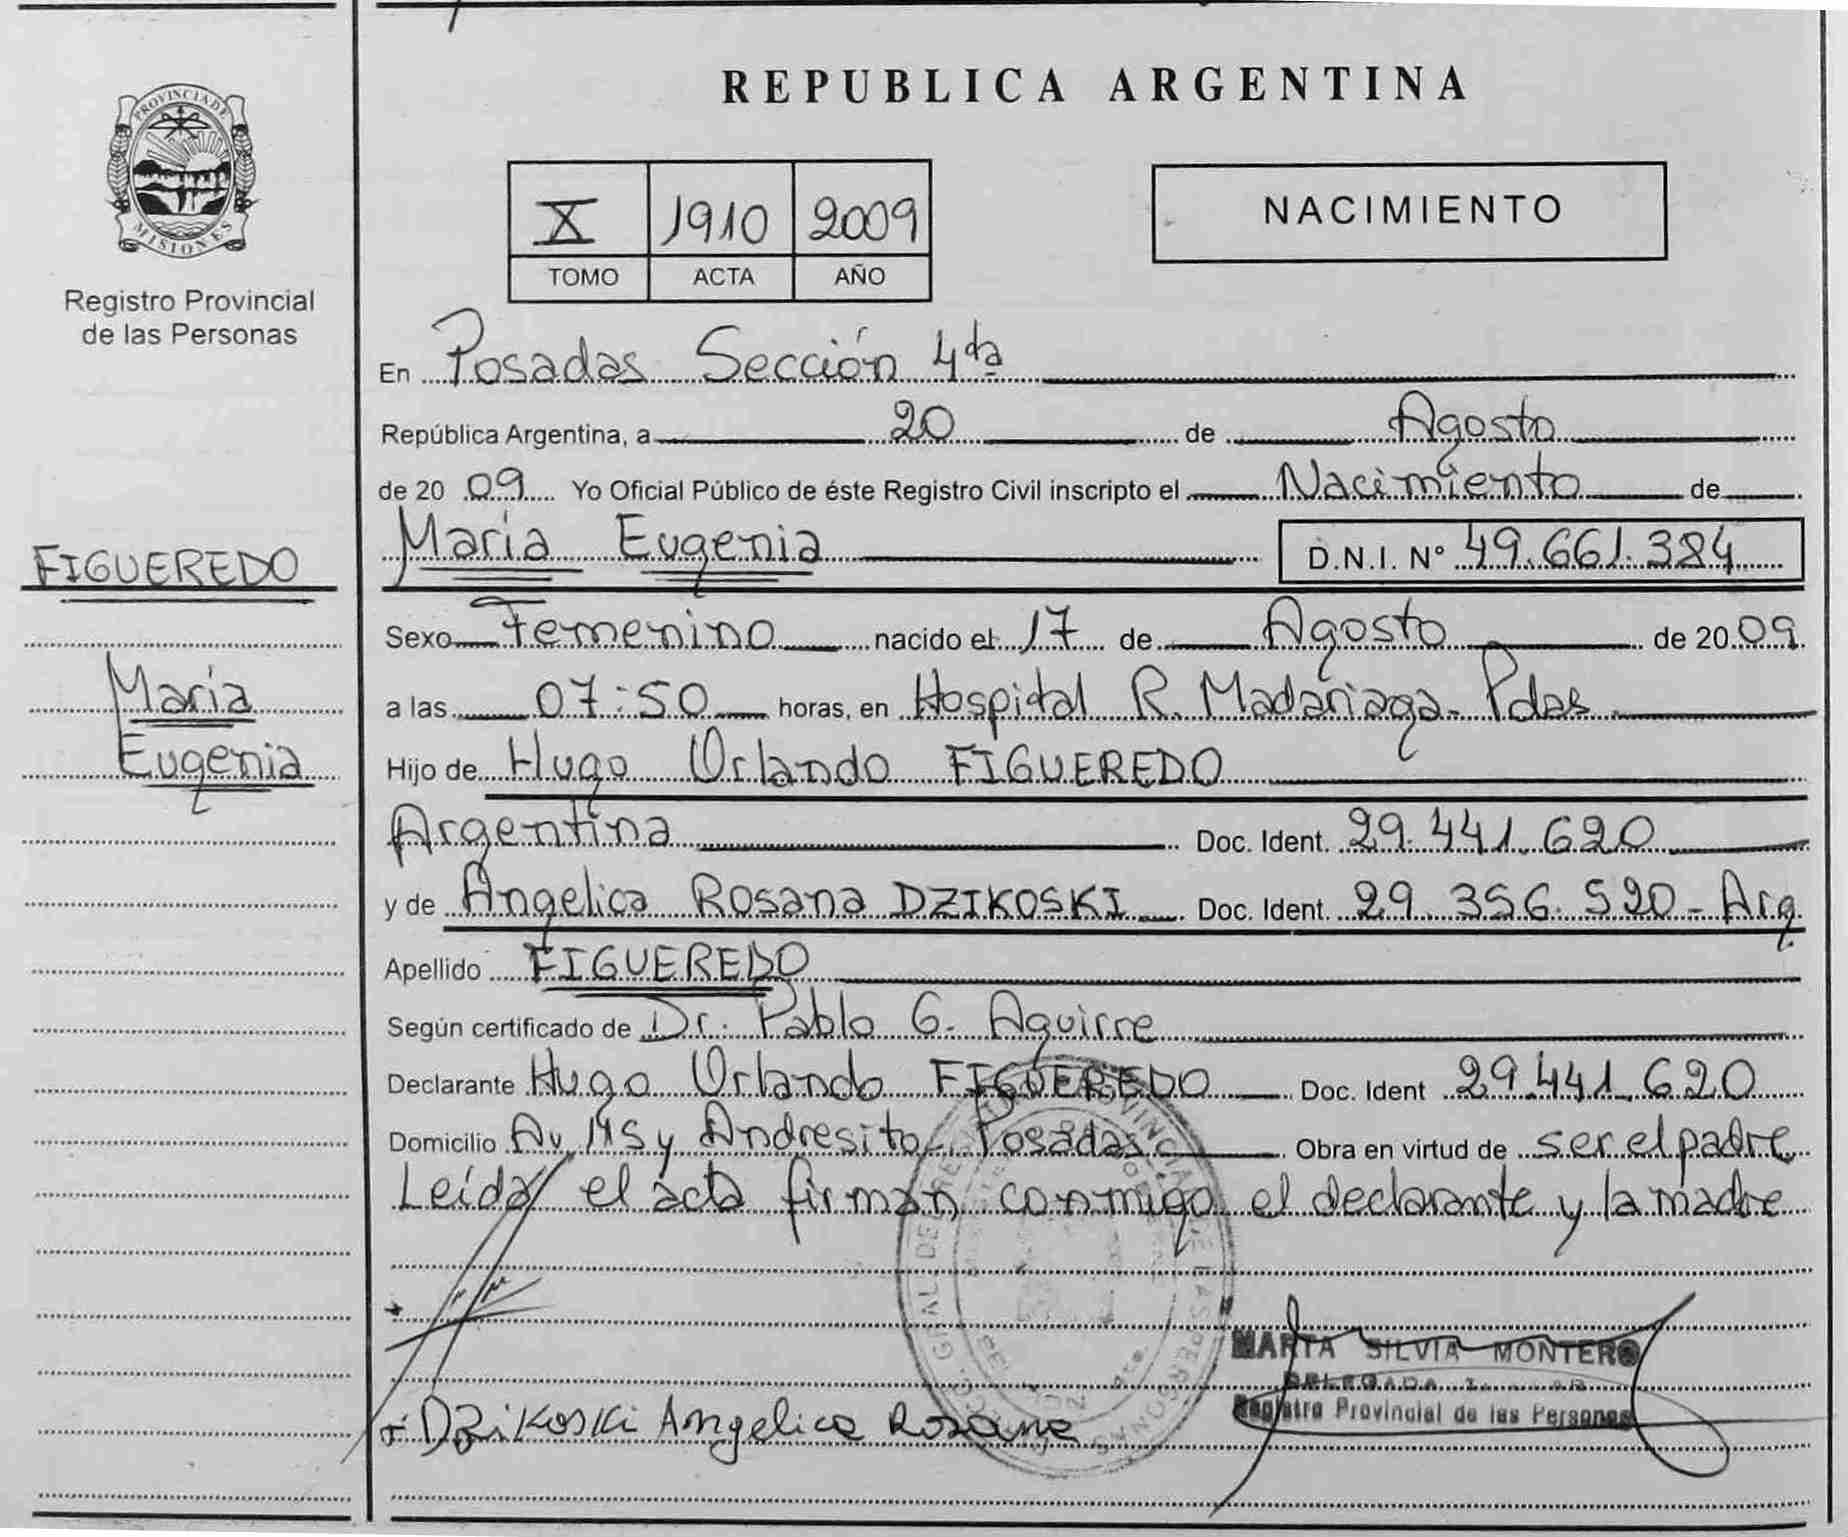 PROVINCIA DE
MISIONES
Registro Provincial
de las Personas
FIGUEREDO
María
Eugenia
REPUBLICA ARGENTINA
X 1910 2009
TOMO ACTA AÑO
NACIMIENTO
En Posadas Sección 4ta
República Argentina, a 20 de Agosto
de 20 09 Yo Oficial Público de éste Registro Civil inscripto el Nacimiento de
María Eugenia D.N.I. N° 49.661.384
Sexo Femenino nacido el 17 de Agosto de 20 09
a las 07:50 horas, en Hospital R. Madariaga - Pdas
Hijo de Hugo Orlando FIGUEREDO
Argentina Doc. Ident. 29.441.620
y de Angelica Rosana DZIKOSKI Doc. Ident. 29.356.520 - Arg
Apellido FIGUEREDO
Según certificado de Dr. Pablo G. Aguirre
Declarante Hugo Orlando FIGUEREDO Doc. Ident 29.441.620
Domicilio Av. y Andresito - Posadas Obra en virtud de ser el padre
Leída el acta firman conmigo el declarante y la madre
MARTA SILVIA MONTERO
DELEGADA
Registro Provincial de las Personas
Dzikoski Angelica Rosana